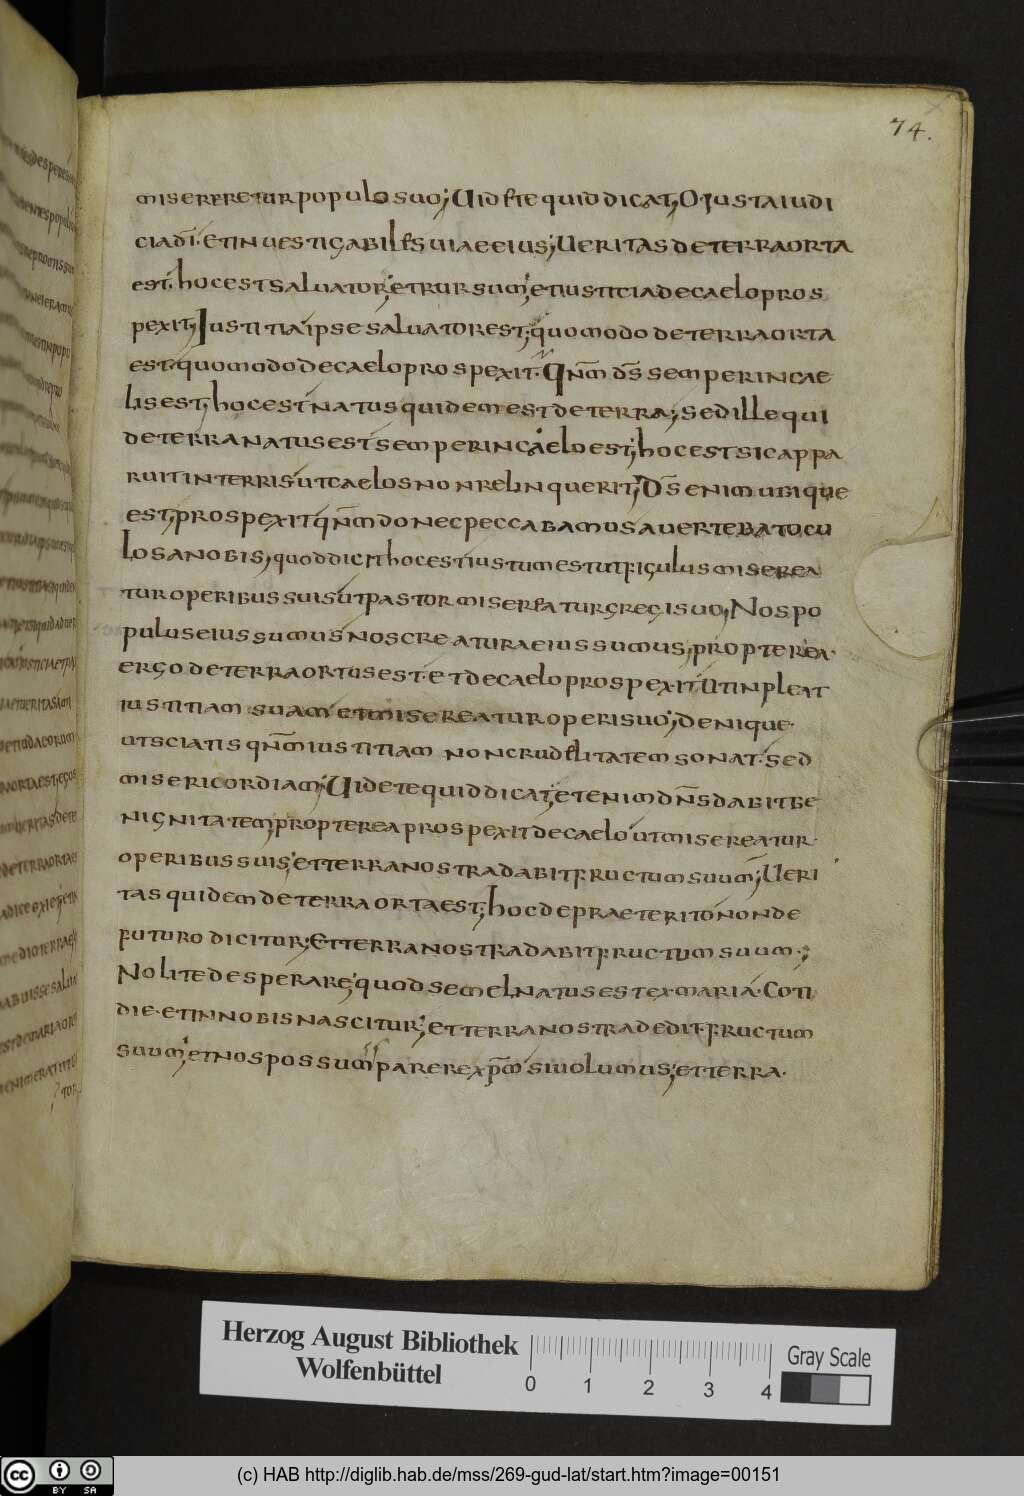 74.
misereretur populo suo; Uidete quid dicat, O justa iudi
cia dī. et inuestigabiles uiae eius; Ueritas de terra orta
est. hoc est saluator; et rursum; et iusticia de caelo pros
pexit; Justitia ipse saluator est; quomodo de terra orta
est. quomodo de caelo prospexit. Qnm̄ ds̄ semper in cae
lis est; hoc est natus quidem est de terra; sed ille qui
de terra natus est semper in caelo est; hoc est sic appa
ruit in terris ut caelos non relinquerit; Ds̄ enim ubique
est; prospexit qnm̄ donec peccabamus auertebat ocu
los a nobis, quod dicit hoc est iustum est ut figulus miserea
tur operibus suis ut pastor misereatur gregi suo, Nos po
pulus eius sumus nos creatura eius sumus, propterea
ergo de terra ortus est. et de caelo prospexit ut inpleat
iustitiam suam et misereatur operi suo; Denique.
ut sciatis qnm̄ iustitiam non crudelitatem sonat. sed
misericordiam; Uidete quid dicat, etenim dn̄s dabit be
nignitatem, propterea prospexit de caelo ut misereatur
operibus suis; et terra nostra dabit fructum suum; Ueri
tas quidem de terra orta est; hoc de praeterito non de
futuro dicitur; Et terra nostra dabit fructum suum.;
Nolite desperare; quod semel natus est ex maria. Coti
die. et in nobis nascitur; et terra nostra dedit fructum
suum; et nos possum parere xpm̄ si uolumus; et terra.
Herzog August Bibliothek
Wolfenbüttel
0 1 2 3 4
Gray Scale
cc BY SA
(c) HAB http://diglib.hab.de/mss/269-gud-lat/start.htm?image=00151